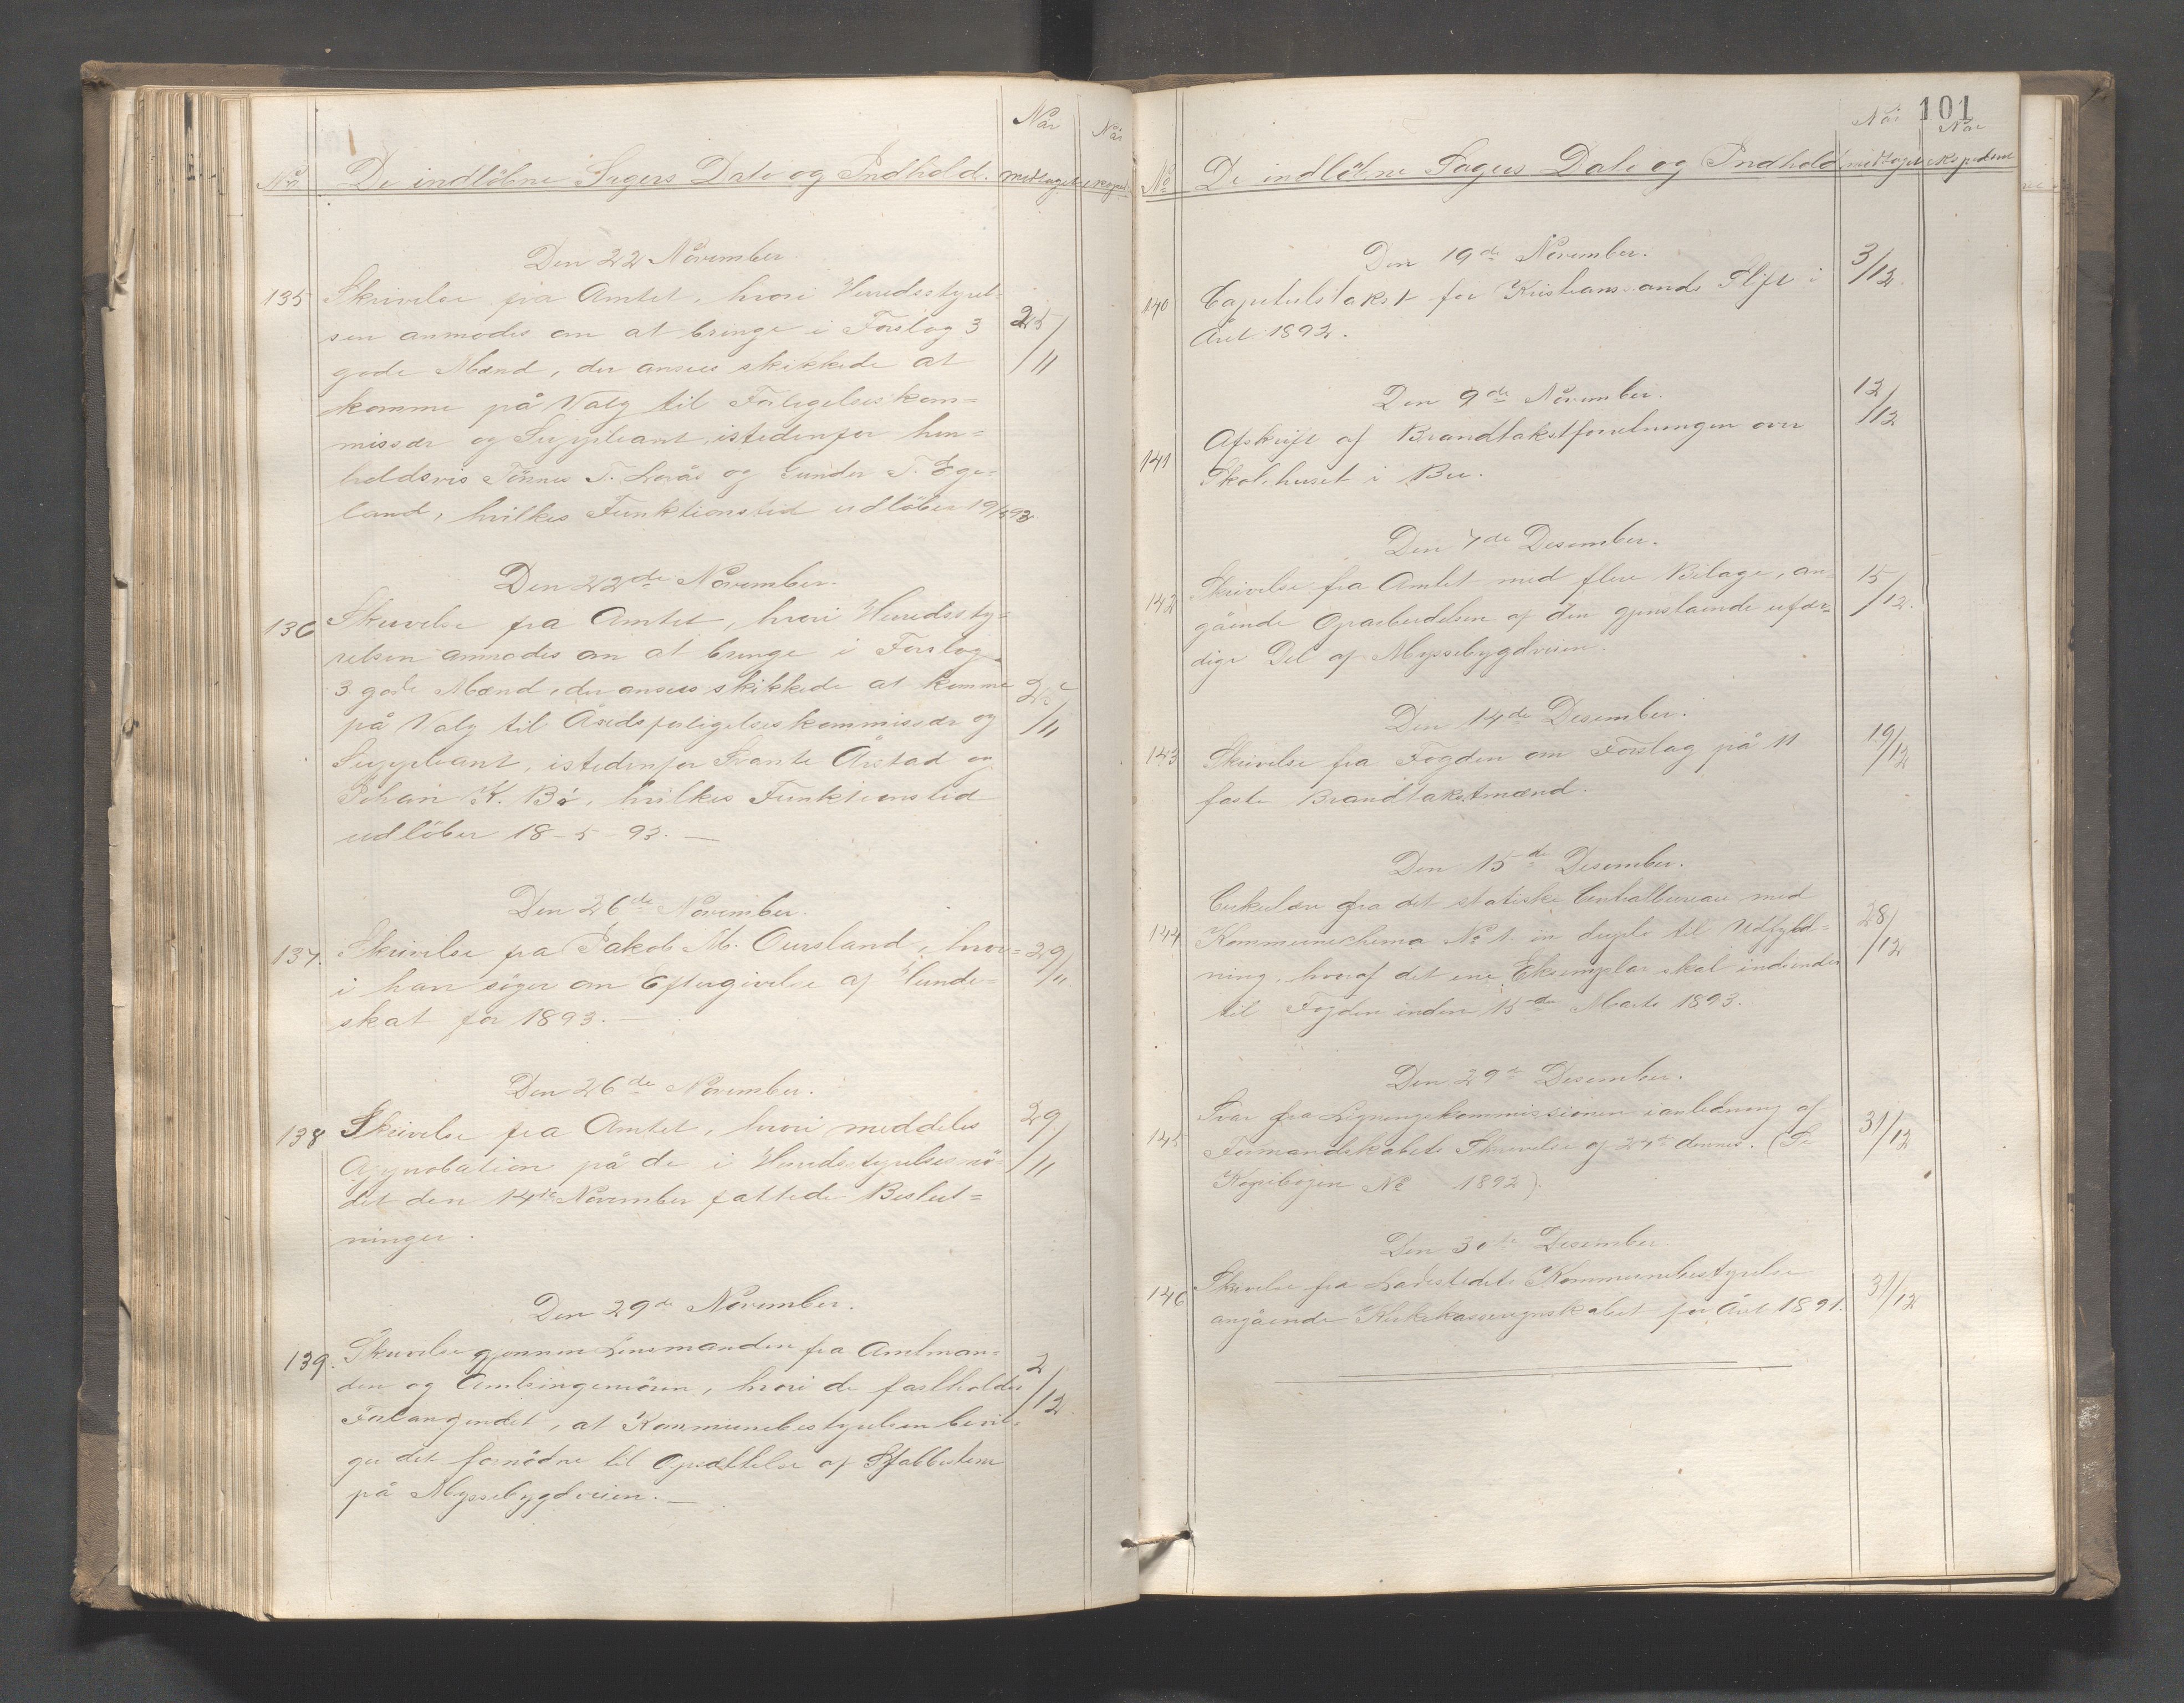 Når Når
No De indløbne Sagers Dato og Indhold. modtaget eksped.
Den 22 November.
135 Skrivelse fra Amtet, hvori Herredsstyrel-
sen anmodes om at bringe i Forslag 3 25/11
gode Mænd, der ansees skikkede at
komme på Valg til Forligelseskom=
missær og Suppleant, istedenfor hen=
holdsvis Tønnes T. Lovås og Gunder T. Ege-
land, hvilkes Funktionstid udløber 19/5 93
Den 22de November.
136 Skrivelse fra Amtet, hvori Herredssty=
relsen anmodes om at bringe i Forslag
3 gode Mænd, der ansees skikkede at komme
på Valg til forligelseskommissær og /11
Suppleant, istedenfor Årstad og
K. Bø, hvilkes Funktionstid
udløber 18-5-93.—
Den 26de November.
137. Skrivelse fra Jakob M. Oursland, hvor= 29/11
i han søger om Eftergivelse af Hunde=
skat for 1893.—
Den 26de November.
138 Skrivelse fra Amtet, hvori meddeles 29/11
Approbation på de i Herredsstyrelsesmø-
det den 14de November fattede Beslut=
ninger.
Den 29de November.
139. Skrivelse gjennem Lensmanden fra Amtman=
den og Amtsingeniøren, hvori de fastholder 2/12
Forlangendet, at Kommunebestyrelsen bevil=
ger det fornødne til Opsættelse af Stabbestene
på Myssebygdveien.—
101
Når Når
No De indløbne Sagers Dato og Indhold modtaget ekspederet
Den 19de November.
140 Capitulstakst for Kristianssands Stift i 3/12
Året 1892.
Den 9de November.
141 Afskrift af Brandtakstforretningen over 12/12
Skolehuset i Bue.
Den 7de Desember.
142 Skrivelse fra Amtet med flere Bilage, an= 15/12.
gående Oparbeidelsen af den gjenstående ufær=
dige Del af Myssebygdveien.
Den 14de Desember.
143 Skrivelse fra Fogden om Forslag på 11 19/12
faste Brandtakstmænd.
Den 15de Desember.
Cirkulære fra det statiske Centralbureau med
144 Kommuneschema No 1. in duplo til Udfyld= 28/12
ning, hvoraf det ene Eksemplar skal indsendes
til Fogden inden 15de Marts 1893.
Den 29de Desember.
145 Svar fra Ligningskommissionen i anledning af 31/12
Formandskabets Skrivelse af 27de dennes. (Se
Kopibogen No 1892).
Den 30de Desember
146 Skrivelse fra Ladestedets Kommunebestyrelse 31/12
angående Kirkekasseregnskabet for Året 1891.